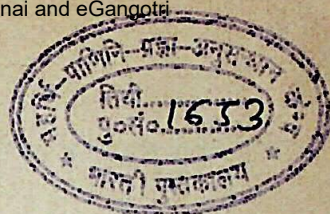 nai and eGangotri
महर्षि-पाणिनि-प्रज्ञा-अनुसन्धान
तिथी............
पु०सं०.1653
भारती पुस्तकालय